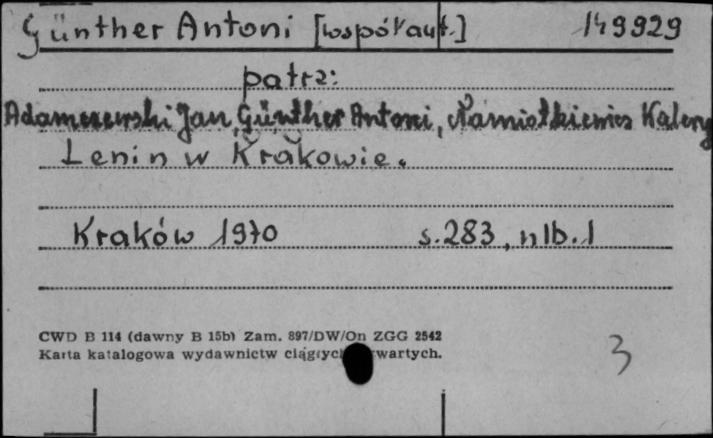 Günther Antoni [współaut.] 149929
patrz:
Adamczewski Jan, Günther Antoni, Namiotkiewicz Walery
Lenin w Krakowie.
Kraków 1970 s.283, nlb.1
CWD B 114 (dawny B 15b) Zam. 897/DW/On ZGG 2542
Karta katalogowa wydawnictw ciągłych wartych.
3